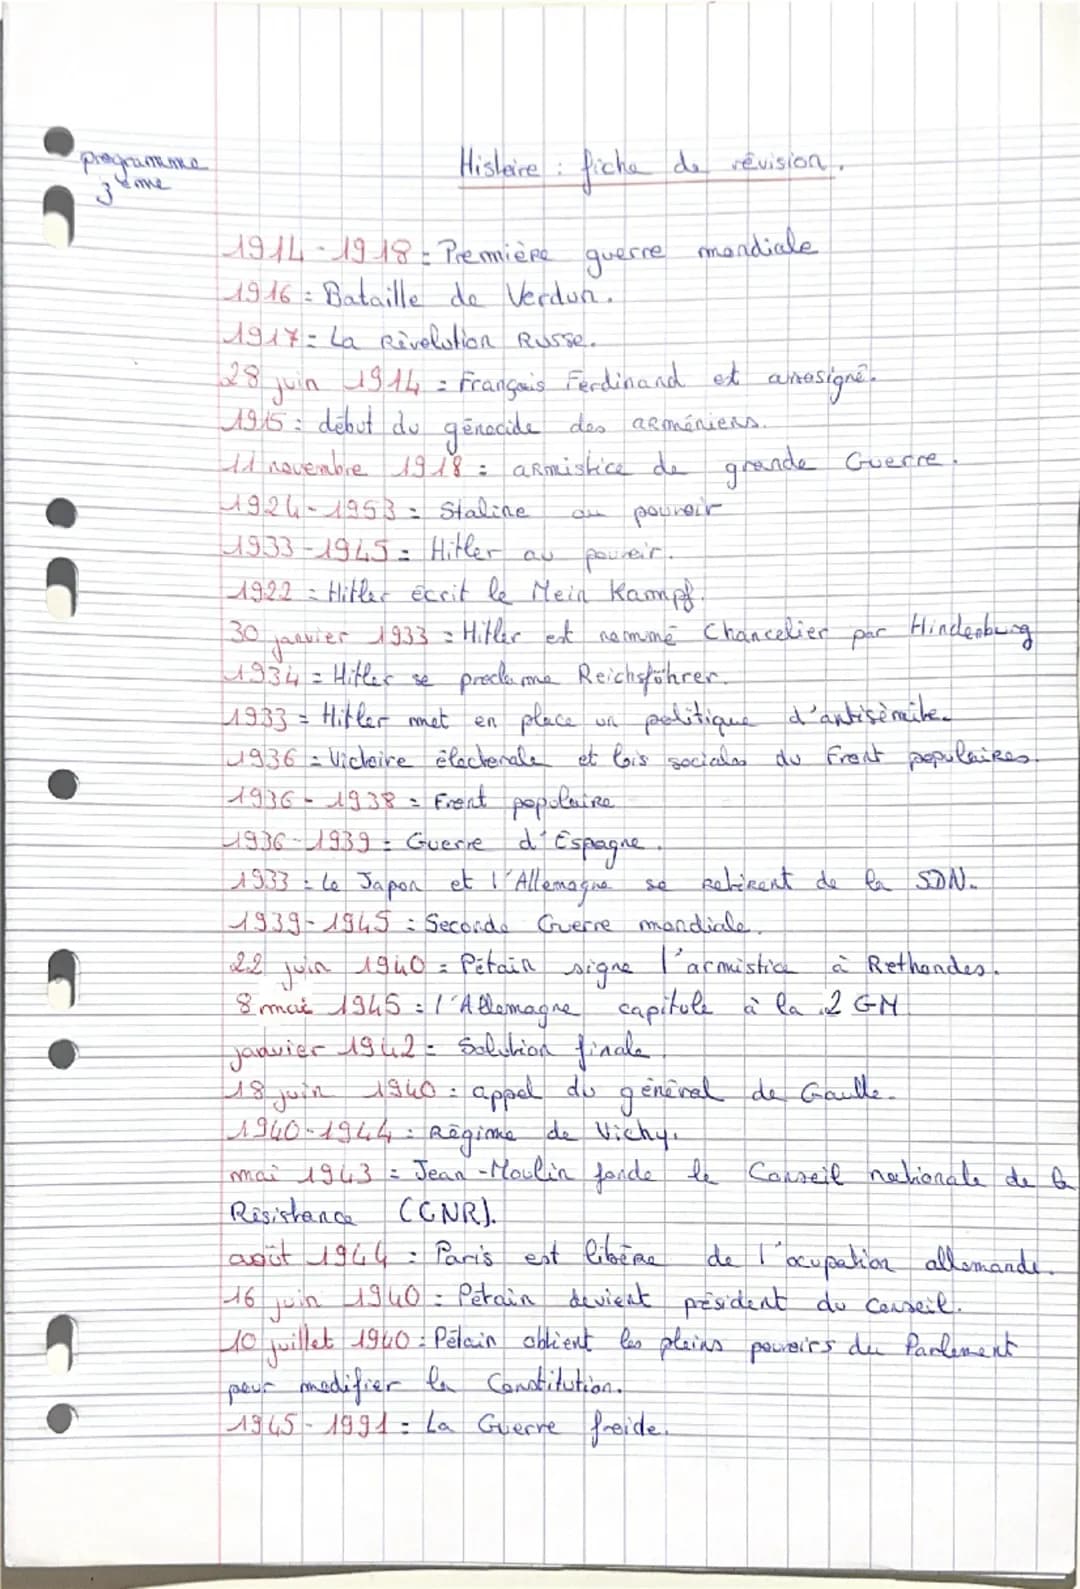 programme
3ème
Histoire : fiche de révision.
1914-1918 = Première guerre mondiale
1916 = Bataille de Verdun.
1917 = La Révolution Russe.
28 juin 1914 = François Ferdinand et assasigné.
1915 = début du génocide des arméniens.
11 novembre 1918 = armistice de grande Guerre.
1924-1953 = Staline au pouvoir
1933-1945 = Hitler au pouvoir.
1922 = Hitler écrit le Mein Kampf.
30 janvier 1933 = Hitler est nommé Chancelier par Hindenburg
1934 = Hitler se proclame Reichsführer.
1933 = Hitler met en place un politique d'antisémite.
1936 = Victoire électorale et lois sociales du Front populaires.
1936-1938 = Front populaire
1936-1939 = Guerre d'Espagne.
1933 = Le Japon et l'Allemagne se retirent de la SDN.
1939-1945 = Seconde Guerre mondiale.
22 juin 1940 = Pétain signe l'armistice à Rethondes.
8 mai 1945 = l'Allemagne capitule à la 2 GM
janvier 1942 = Solution finale
18 juin 1940 = appel du général de Gaulle.
1940-1944 = Régime de Vichy.
mai 1943 = Jean-Moulin fonde le Conseil nationale de la
Résistance (CNR).
août 1944 = Paris est libéré de l'ocupation allemande.
16 juin 1940 = Pétain devient président du Conseil.
10 juillet 1940 = Pétain obtient les pleins pouvoirs du Parlement
pour modifier la Constitution.
1945-1991 = La Guerre froide.